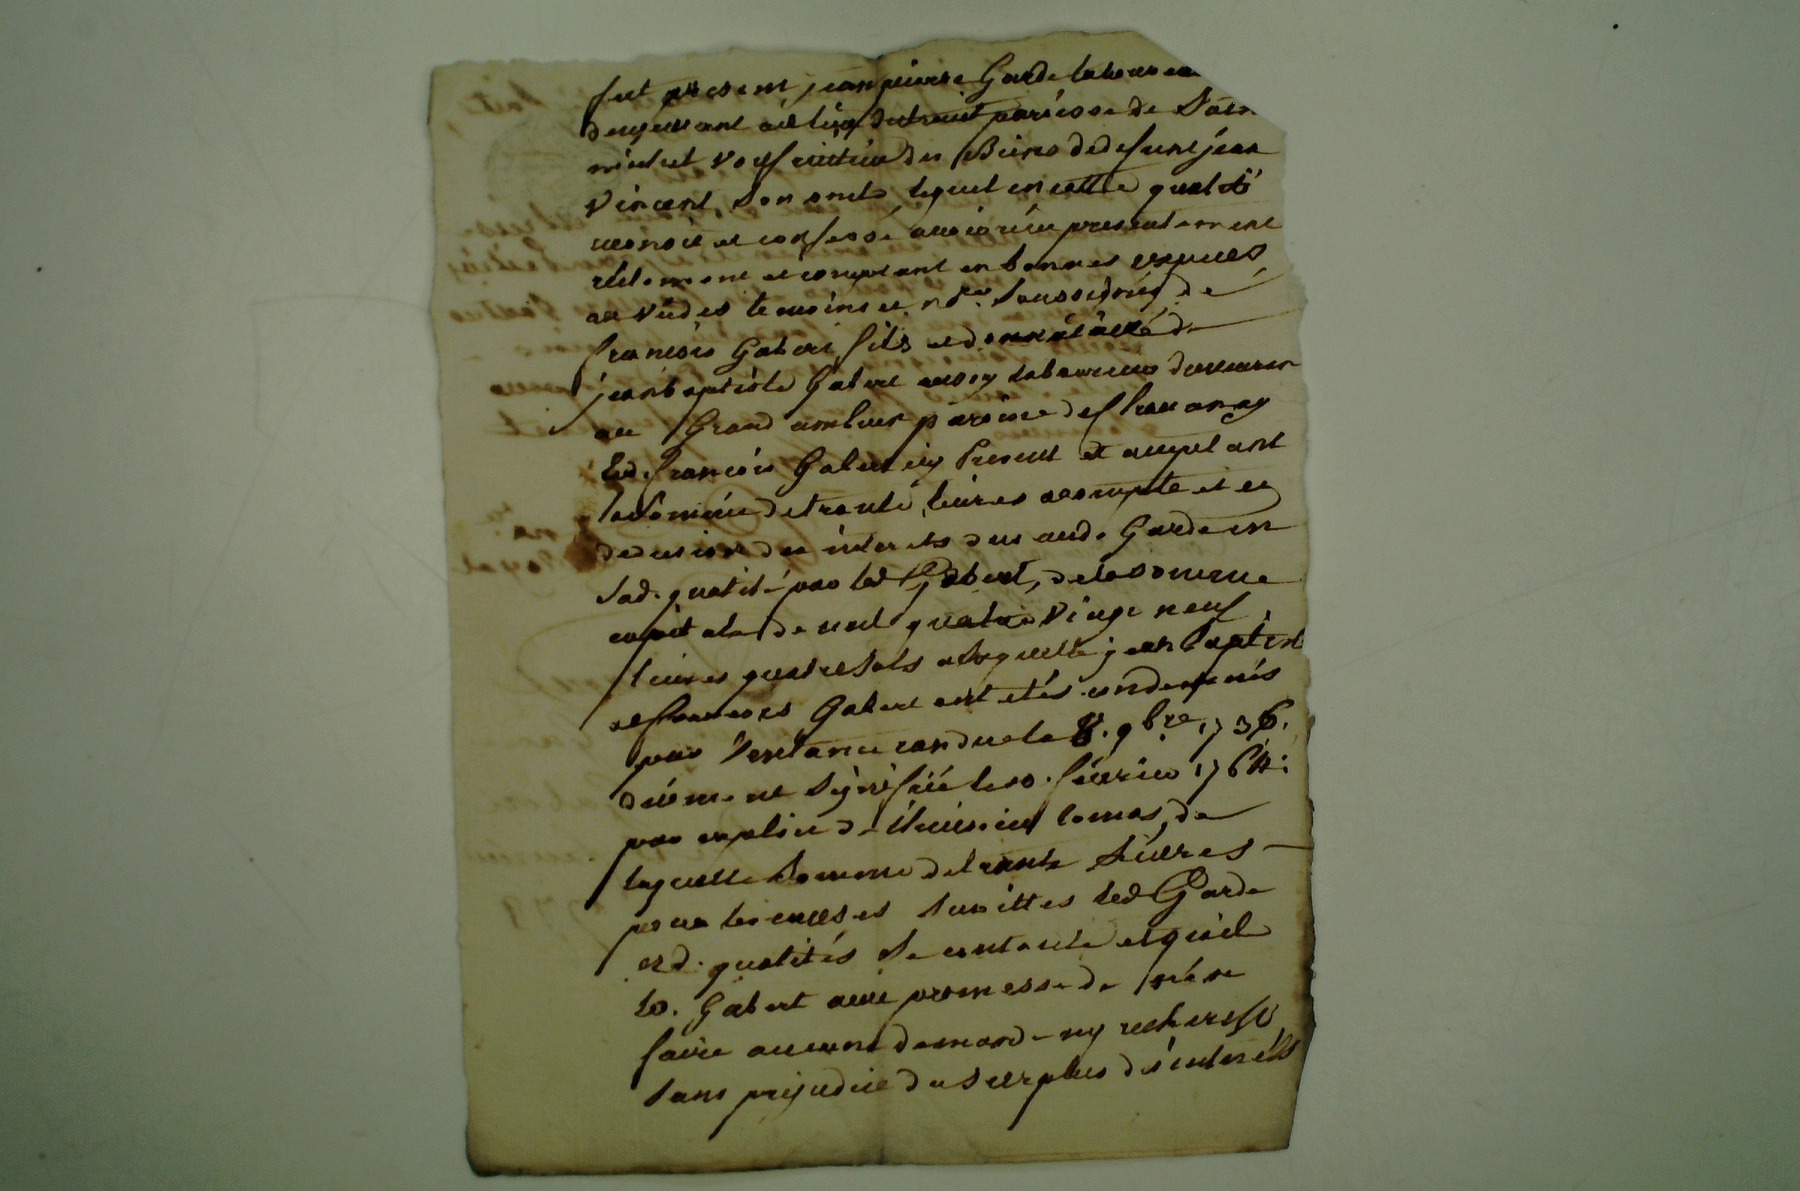 fut present jean pierre Garde laboureu
demeurant au lieu dutruit parroisse de Sain
michel Vousfruitier des Biens de defunt jean
Vincent, Son oncle, lequel en cette qualité
reconoit et confesse avoir réçu presentement
réèlement et comptant en bonnes espèces
au Vû des temoins et nre. Soussignés de
françois Gabert fils et donnataire de
jean baptiste Gabert aussy laboureur demeuran
au Grand ambur paroisse de Chavanay
led. françois Gabert icy Present et acceptant
la Somme de trante livres acompte et en
deduction des interets dus aud. Garde en
Sad. qualité par led. Gabert, de la somme
capitale de cent quatre Vingt neuf
livres quatre Sols a laquelle jean baptist
et francois Gabert ont etés condemnés
par Sentance rendue le 8. 9bre. 1736.
duëment Signifiée le 10. février 1764.
par exploit de
laquelle Somme de trante livres
pour les causes Susdittes led. Garde
esd. qualités Se contente et quitte
led. Gabert avec promesse de ne
faire aucune demande ny recherche
Sans prejudice du Surplus des interèts